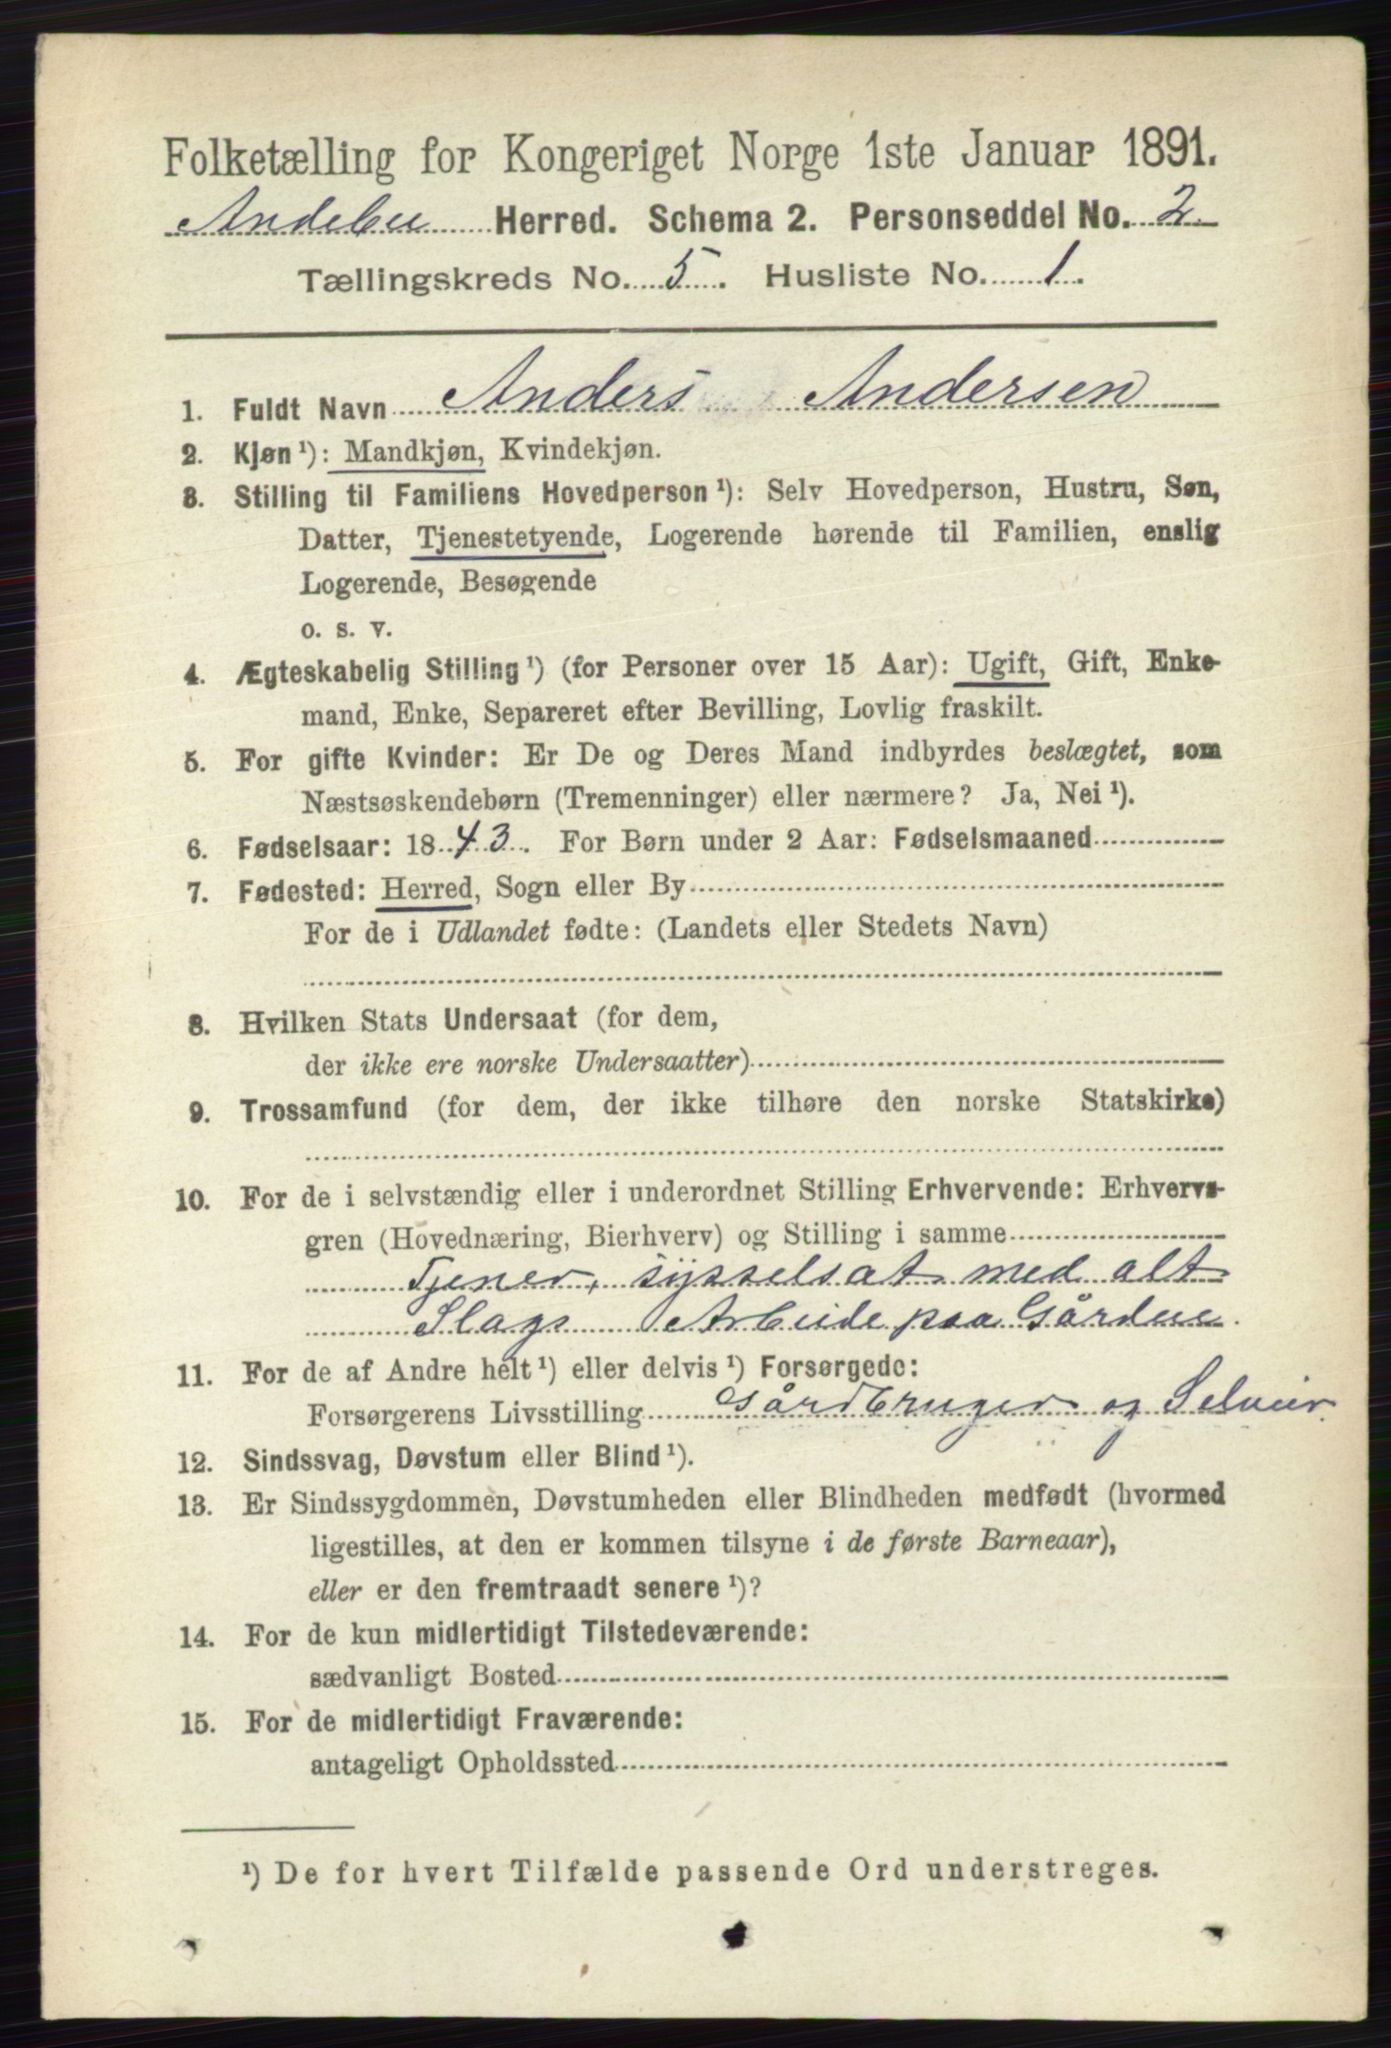 Folketælling for Kongeriget Norge 1ste Januar 1891.
Andebu Herred. Schema 2. Personseddel No. 2
Tællingskreds No. 5. Husliste No. 1.
1. Fuldt Navn Anders Andersen
2. Kjøn ¹): Mandkjøn, Kvindekjøn.
3. Stilling til Familiens Hovedperson ¹): Selv Hovedperson, Hustru, Søn,
Datter, Tjenestetyende, Logerende hørende til Familien, enslig
Logerende, Besøgende
o. s. v.
4. Ægteskabelig Stilling ¹) (for Personer over 15 Aar): Ugift, Gift, Enke-
mand, Enke, Separeret efter Bevilling, Lovlig fraskilt.
5. For gifte Kvinder: Er De og Deres Mand indbyrdes beslægtet, som
Næstsøskendebørn (Tremenninger) eller nærmere? Ja, Nei ¹).
6. Fødselsaar: 1843. For Børn under 2 Aar: Fødselsmaaned
7. Fødested: Herred, Sogn eller By
For de i Udlandet fødte: (Landets eller Stedets Navn)
8. Hvilken Stats Undersaat (for dem,
der ikke ere norske Undersaatter)
9. Trossamfund (for dem, der ikke tilhøre den norske Statskirke)
10. For de i selvstændig eller i underordnet Stilling Erhvervende: Erhvervs-
gren (Hovednæring, Bierhverv) og Stilling i samme
Tjener, sysselsat med alt
Slags Arbeide paa Gården.
11. For de af Andre helt ¹) eller delvis ¹) Forsørgede:
Forsørgerens Livsstilling Gårdbruger og Selveier
12. Sindssvag, Døvstum eller Blind ¹).
13. Er Sindssygdommen, Døvstumheden eller Blindheden medfødt (hvormed
ligestilles, at den er kommen tilsyne i de første Barneaar),
eller er den fremtraadt senere ¹)?
14. For de kun midlertidigt Tilstedeværende:
sædvanligt Bosted
15. For de midlertidigt Fraværende:
antageligt Opholdssted
¹) De for hvert Tilfælde passende Ord understreges.